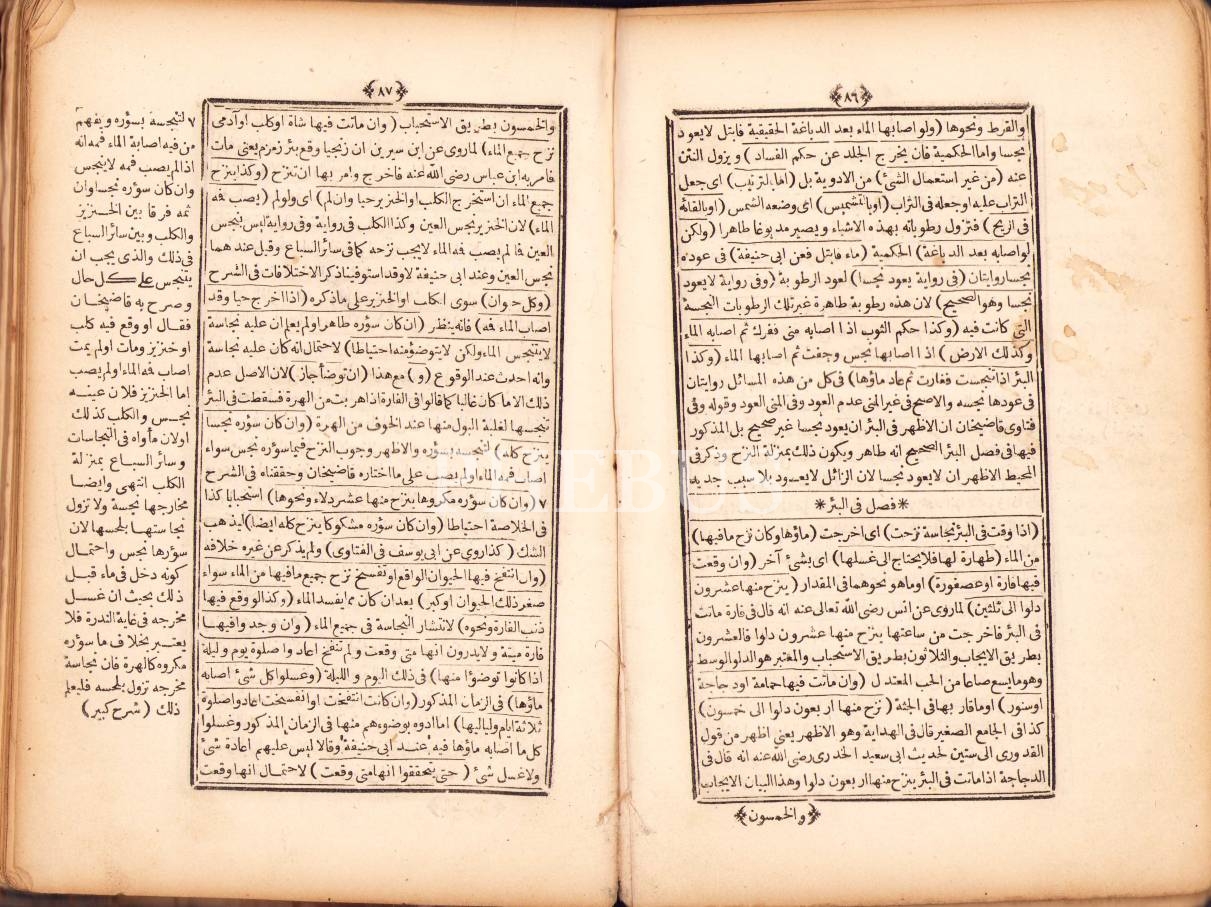 ﴿٨٦﴾
والقرط ونحوها (ولو اصابها الماء بعد الدباغة الحقيقية فابتل لايعود
نجسا واما الحكمية فان يخرج الجلد عن حكم الفساد) ويزول النتن
عنه (من غير استعمال الشئ) من الادوية بل (اما بالترتيب) اى جعل
التراب عليه او جعله فى التراب (او بالتشميس) اى وضعه الشمس (او بالقائه
فى الريح) فتزول رطوباته بهذه الاشياء ويصير مدبوغا طاهرا (ولكن
لو اصابه بعد الدباغة) الحكمية (ماء فابتل فعن ابى حنيفة) فى عوده
نجسا روايتان (فى رواية يعود نجسا) لعود الرطوبة (وفى رواية لايعود
نجسا وهو الصحيح) لان هذه رطوبة طاهرة غير تلك الرطوبات النجسة
التى كانت فيه (وكذا حكم الثوب اذا اصابه منى ففرك ثم اصابه الماء
وكذلك الارض) اذا اصابها نجس وجفت ثم اصابها الماء (وكذا
البئر اذا تنجست فغارت ثم عاد ماؤها) فى كل من هذه المسائل روايتان
فى عودها نجسه والاصح فى غير المنى عدم العود وفى المنى العود وقوله وفى
فتاوى قاضيخان ان الاظهر فى البئر ان يعود نجسا غير صحيح بل المذكور
فيها فى فصل البئر الصحيح انه طاهر ويكون ذلك بمنزلة النزح وذكر فى
المحيط الاظهر ان لايعود نجسا لان الزائل لايعود بلا سبب جديد
* فصل فى البئر *
(اذا وقعت فى البئر نجاسة نزحت) اى اخرجت (ماؤها وكان نزح ما فيها)
من الماء (طهارة لها فلا يحتاج الى غسلها) اى بشئ آخر (وان وقعت
فيها فارة او عصفورة) او ما هو نحوهما فى المقدار (ينزح منها عشرون
دلوا الى ثلثين) لما روى عن انس رضى الله تعالى عنه انه قال فى فارة ماتت
فى البئر فاخرجت من ساعتها ينزح منها عشرون دلوا فالعشرون
بطريق الايجاب والثلاثون بطريق الاستحباب والمعتبر هو الدلو الوسط
وهو ما يسع صاعا من الحب المعتدل (وان ماتت فيها حمامة او دجاجة
او سنور) او ما قاربها فى الجثة (نزح منها اربعون دلوا الى خمسون)
كذا فى الجامع الصغير قال فى الهداية وهو الاظهر يعنى اظهر من قول
القدورى الى ستين لحديث ابى سعيد الخدرى رضى الله عنه انه قال فى
الدجاجة اذا ماتت فى البئر ينزح منها اربعون دلوا وهذا البيان الايجاب
﴿والخمسون﴾
﴿٨٧﴾
والخمسون بطريق الاستحباب (وان ماتت فيها شاة او كلب او آدمى
نزح جميع الماء) لما روى عن ابن سيرين ان زنجيا وقع بئر زمزم يعنى مات
فامر به ابن عباس رضى الله عنه فاخرج وامر بها ان تنزح (وكذا ينزح
جميع الماء ان استخرج الكلب والخنزير حيا وان لم) اى ولو لم (يصب فمه
الماء) لان الخنزير نجس العين وكذا الكلب فى رواية وفى رواية ليس بنجس
العين فا لم يصب فمه الماء لايجب نزحه كما فى سائر السباع وقيل عندهما
نجس العين وعند ابى حنيفة لا وقد استوفينا ذكر الاختلافات فى الشرح
(وكل حيوان) سوى الكلب او الخنزير على ما ذكره (اذا اخرج حيا وقد
اصاب الماء فمه) فانه ينظر (ان كان سؤره طاهرا ولم يعلم ان عليه نجاسة
لايتنجس الماء ولكن لايتوضؤ منه احتياطا) لاحتمال انه كان عليه نجاسة
وانه احدث عند الوقوع (و) مع هذا (ان توضأ جاز) لان الاصل عدم
ذلك الا ما كان غالبا كما قالوا فى الفارة اذا هربت من الهرة فسقطت فى البئر
تنجسها لغلبة البول منها عند الخوف من الهرة (وان كان سؤره نجسا
ينزح كله) لتنجسه بسؤره والاظهر وجوب النزح فيما سؤره نجس سواء
اصاب فمه الماء او لم يصب على ما اختاره قاضيخان وحققناه فى الشرح
٧ (وان كان سؤره مكروها ينزح منها عشر دلاء ونحوها) استحبابا كذا
فى الخلاصة احتياطا (وان كان سؤره مشكوكا ينزح كله ايضا) ليذهب
الشك (كذا روى عن ابى يوسف فى الفتاوى) ولم يذكر عن غيره خلافه
(وان انتفخ فيها الحيوان الواقع او تفسخ نزح جميع ما فيها من الماء سواء
صغر ذلك الحيوان او كبر) بعد ان كان مما يفسد الماء (وكذا لو وقع فيها
ذنب الفارة ونحوه) لانتشار النجاسة فى جميع الماء (وان وجد وافيها
فارة ميتة ولا يدرون انها متى وقعت ولم تنتفخ اعادوا صلوة يوم وليلة
اذا كانوا توضؤا منها) فى ذلك اليوم والليلة (وغسلوا كل شئ اصابه
ماؤها) فى الزمان المذكور (وان كانت انتفخت او انفسخت اعادو اصلوة
ثلاثة ايام ولياليها) اما ادوه بوضوءهم منها فى الزمان المذكور وغسلوا
كل ما اصابه ماؤها فيه عند ابى حنيفة وقالا ليس عليهم اعادة شئ
ولا غسل شئ (حتى يتحققوا انها متى وقعت) لاحتمال انها وقعت
٧ لتنجسه بسؤره ويفهم
من فيه اصابة الماء فمه انه
اذا لم يصب فمه لاينجس
وان كان سؤره نجسا وان
ثمه فرقا بين الخنزير
والكلب وبين سائر السباع
فى ذلك والذى يجب ان
يتنجس على كل حال
وصرح به قاضيخان
فقال او وقع فيه كلب
او خنزير ومات او لم يمت
اصاب فمه الماء او لم يصب
اما الخنزير فلان عينه
نجس والكلب كذلك
او لان مأواه فى النجاسات
وسائر السباع بمنزلة
الكلب انتهى وايضا
مخارجها نجسة ولا تزول
نجاستها بلحسها لان
سؤرها نجس واحتمال
كونه دخل فى ماء قبل
ذلك بحيث ان غسل
مخرجه فى غاية الندرة فلا
يعتبر بخلاف ما سؤره
مكروه كالهرة فان نجاسة
مخرجه تزول بلحسه فليعلم
ذلك (شرح كبير)